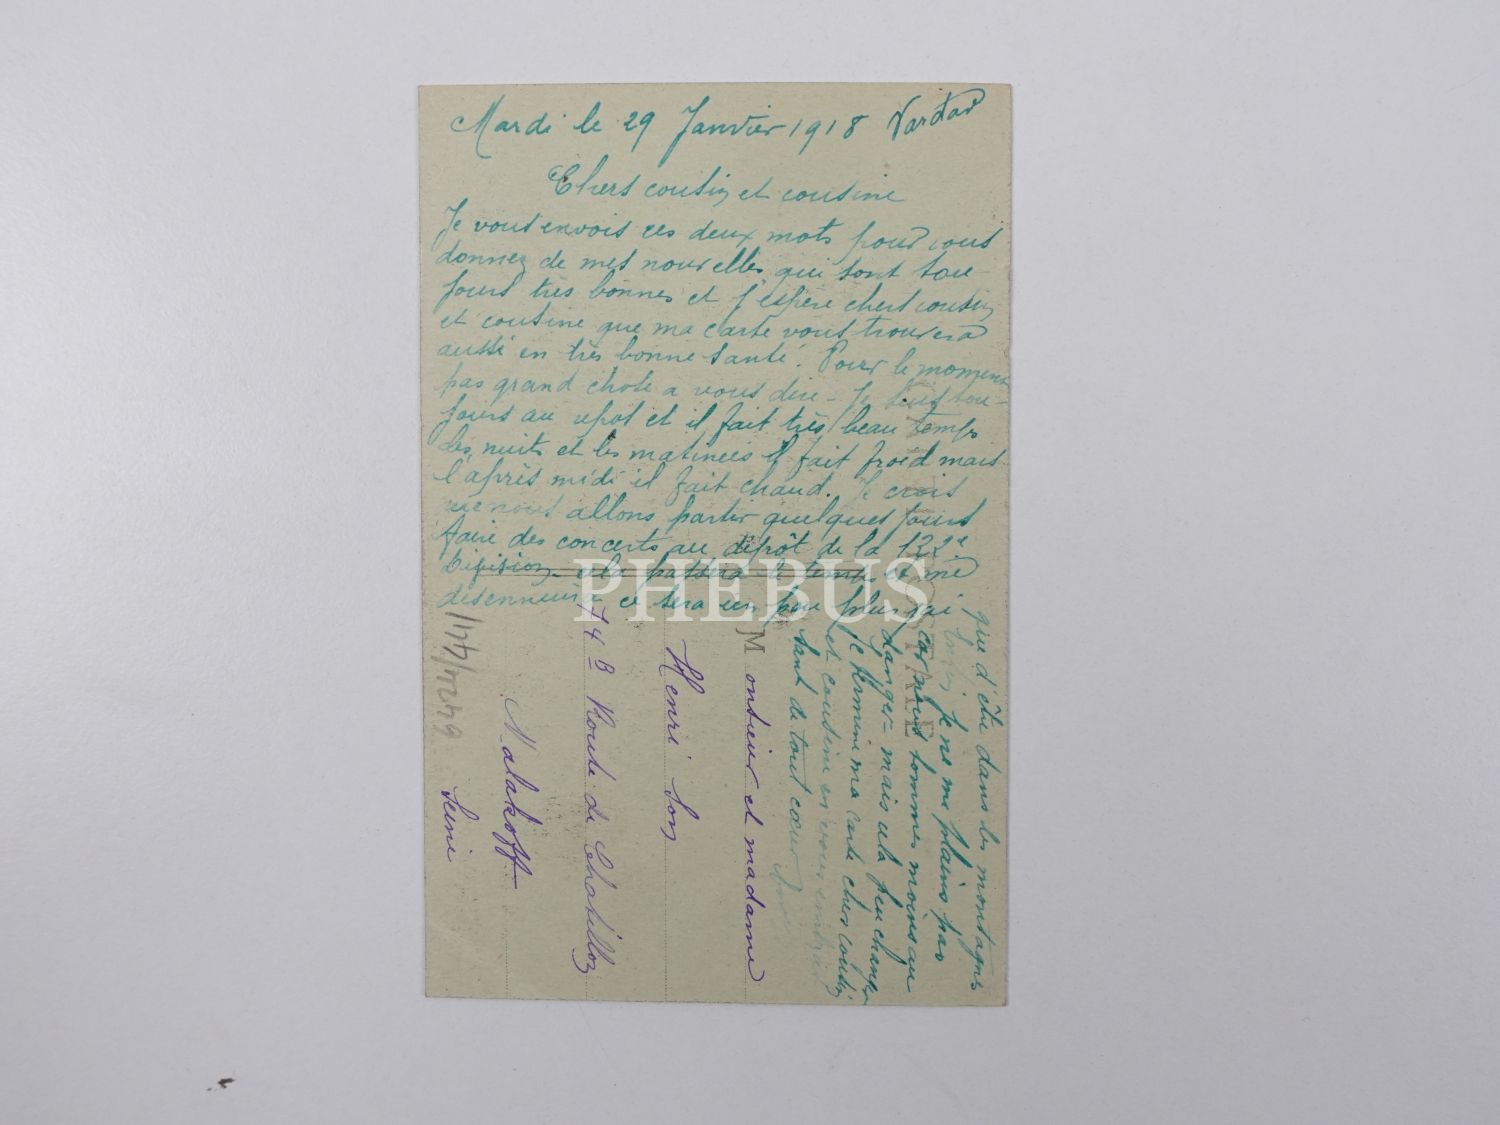 Mardi le 29 Janvier 1918 Vardar
Chers cousin et cousine
Je vous envois ces deux mots pour vous
donnez de mes nouvelles qui sont tou-
jours très bonnes et j'espère chers cousin
et cousine que ma carte vous trouvera
aussi en très bonne santé. Pour le moment
pas grand chose a vous dire - Je suis tou-
jours au repos et il fait très beau temps
les nuits et les matinées il fait froid mais
l'après midi il fait chaud. Je crois
que nous allons partir quelques jours
faire des concerts au dépôt de la 122e
Division cela passera le temps et me
désennuira ce sera un peu plus gai
que d'être dans les montagnes
Enfin je ne me plains pas
car nous sommes moins au
danger - mais cela peu changer
Je termine ma carte chers cousin
et cousine en vous embras
sant de tout cœur
CARTE POSTALE
M onsieur et madame
Henri Son
74 B Route de Chatillon
Malakoff
Seine
PHEBUS